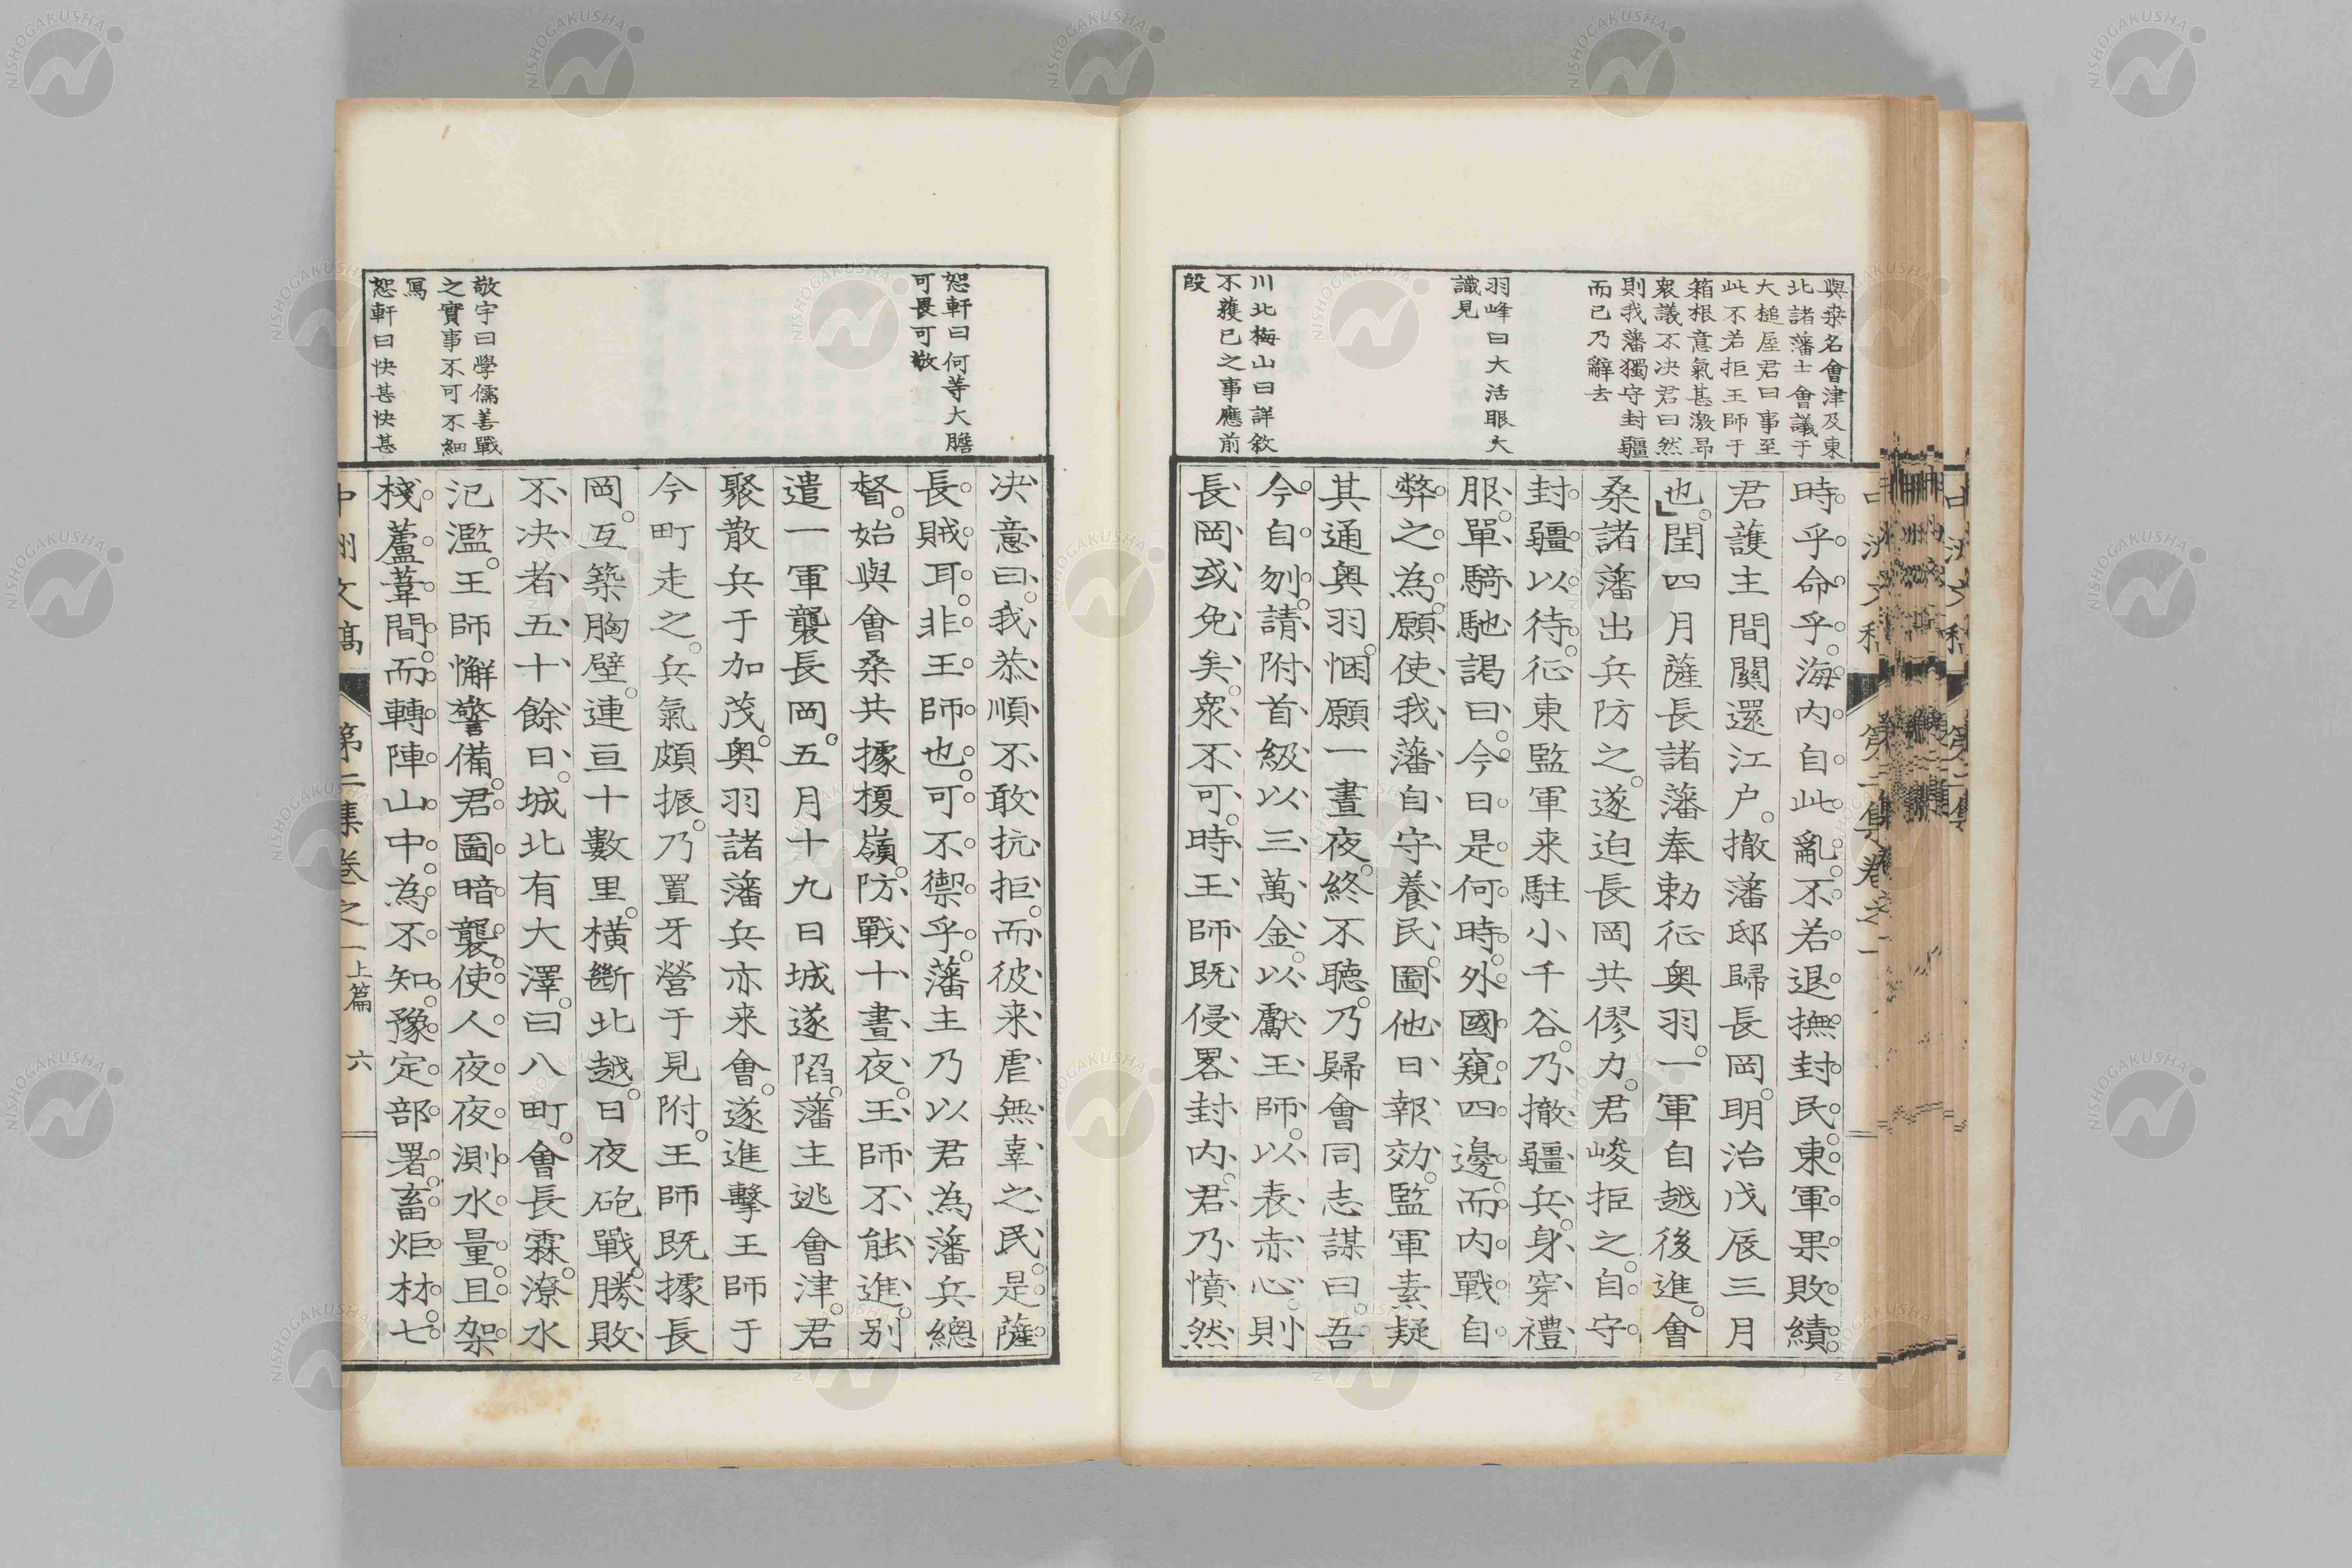 與桒名會津及東
北諸藩士會議于
大槌屋君曰事至
此不若拒王師于
箱根意氣甚激昂
衆議不决君曰然
則我藩獨守封疆
而已乃辭去
羽峰曰大活眼大
識見
川北梅山曰詳敘
不獲已之事應前
段
時乎命乎海内自此亂不若退撫封民東軍果敗績
君護主間關還江户撤藩邸歸長岡明治戊辰三月
也閏四月薩長諸藩奉勅征奥羽一軍自越後進會
桑諸藩出兵防之遂迫長岡共僇力君峻拒之自守
封疆以待征東監軍来駐小千谷乃撤疆兵身穿禮
服單騎馳謁曰今日是何時外國窺四邊而内戰自
弊之為願使我藩自守養民圖他日報効監軍素疑
其通奥羽悃願一晝夜終不聽乃歸會同志謀曰吾
今自刎請附首級以三萬金以獻王師以表赤心則
長岡或免矣衆不可時王師既侵畧封内君乃憤然
恕軒曰何等大膽
可畏可敬
敬宇曰學儒善戰
之實事不可不細
寫
恕軒曰快甚快甚
决意曰我恭順不敢抗拒而彼来虐無辜之民是薩
長賊耳非王師也可不禦乎藩主乃以君為藩兵總
督始與會桑共據榎嶺防戰十晝夜王師不能進别
遣一軍襲長岡五月十九日城遂陷藩主逃會津君
聚散兵于加茂奥羽諸藩兵亦来會遂進擊王師于
今町走之兵氣頗振乃置牙營于見附王師既據長
岡互築胸壁連亘十數里横斷北越日夜砲戰勝敗
不决者五十餘日城北有大澤曰八町會長霖潦水
氾濫王師懈警備君圖暗襲使人夜夜測水量且架
棧蘆葦間而轉陣山中為不知豫定部署畜炬材七
中州文稿 第二集卷之一 上篇 六